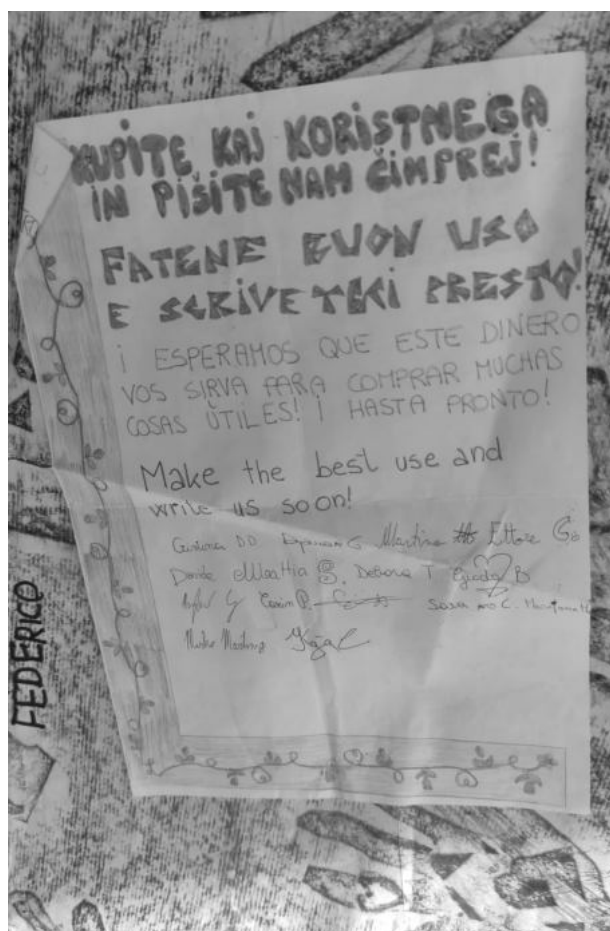 KUPITE KAJ KORISTNEGA
IN PIŠITE NAM ČIMPREJ!
FATENE BUON USO
E SCRIVETECI PRESTO!
¡ ESPERAMOS QUE ESTE DINERO
VOS SIRVA PARA COMPRAR MUCHAS
COSAS ÙTILES! ¡ HASTA PRONTO!
Make the best use and
write us soon!
Martina Ettore
Davide Mattia B. Debora T B
FEDERICO